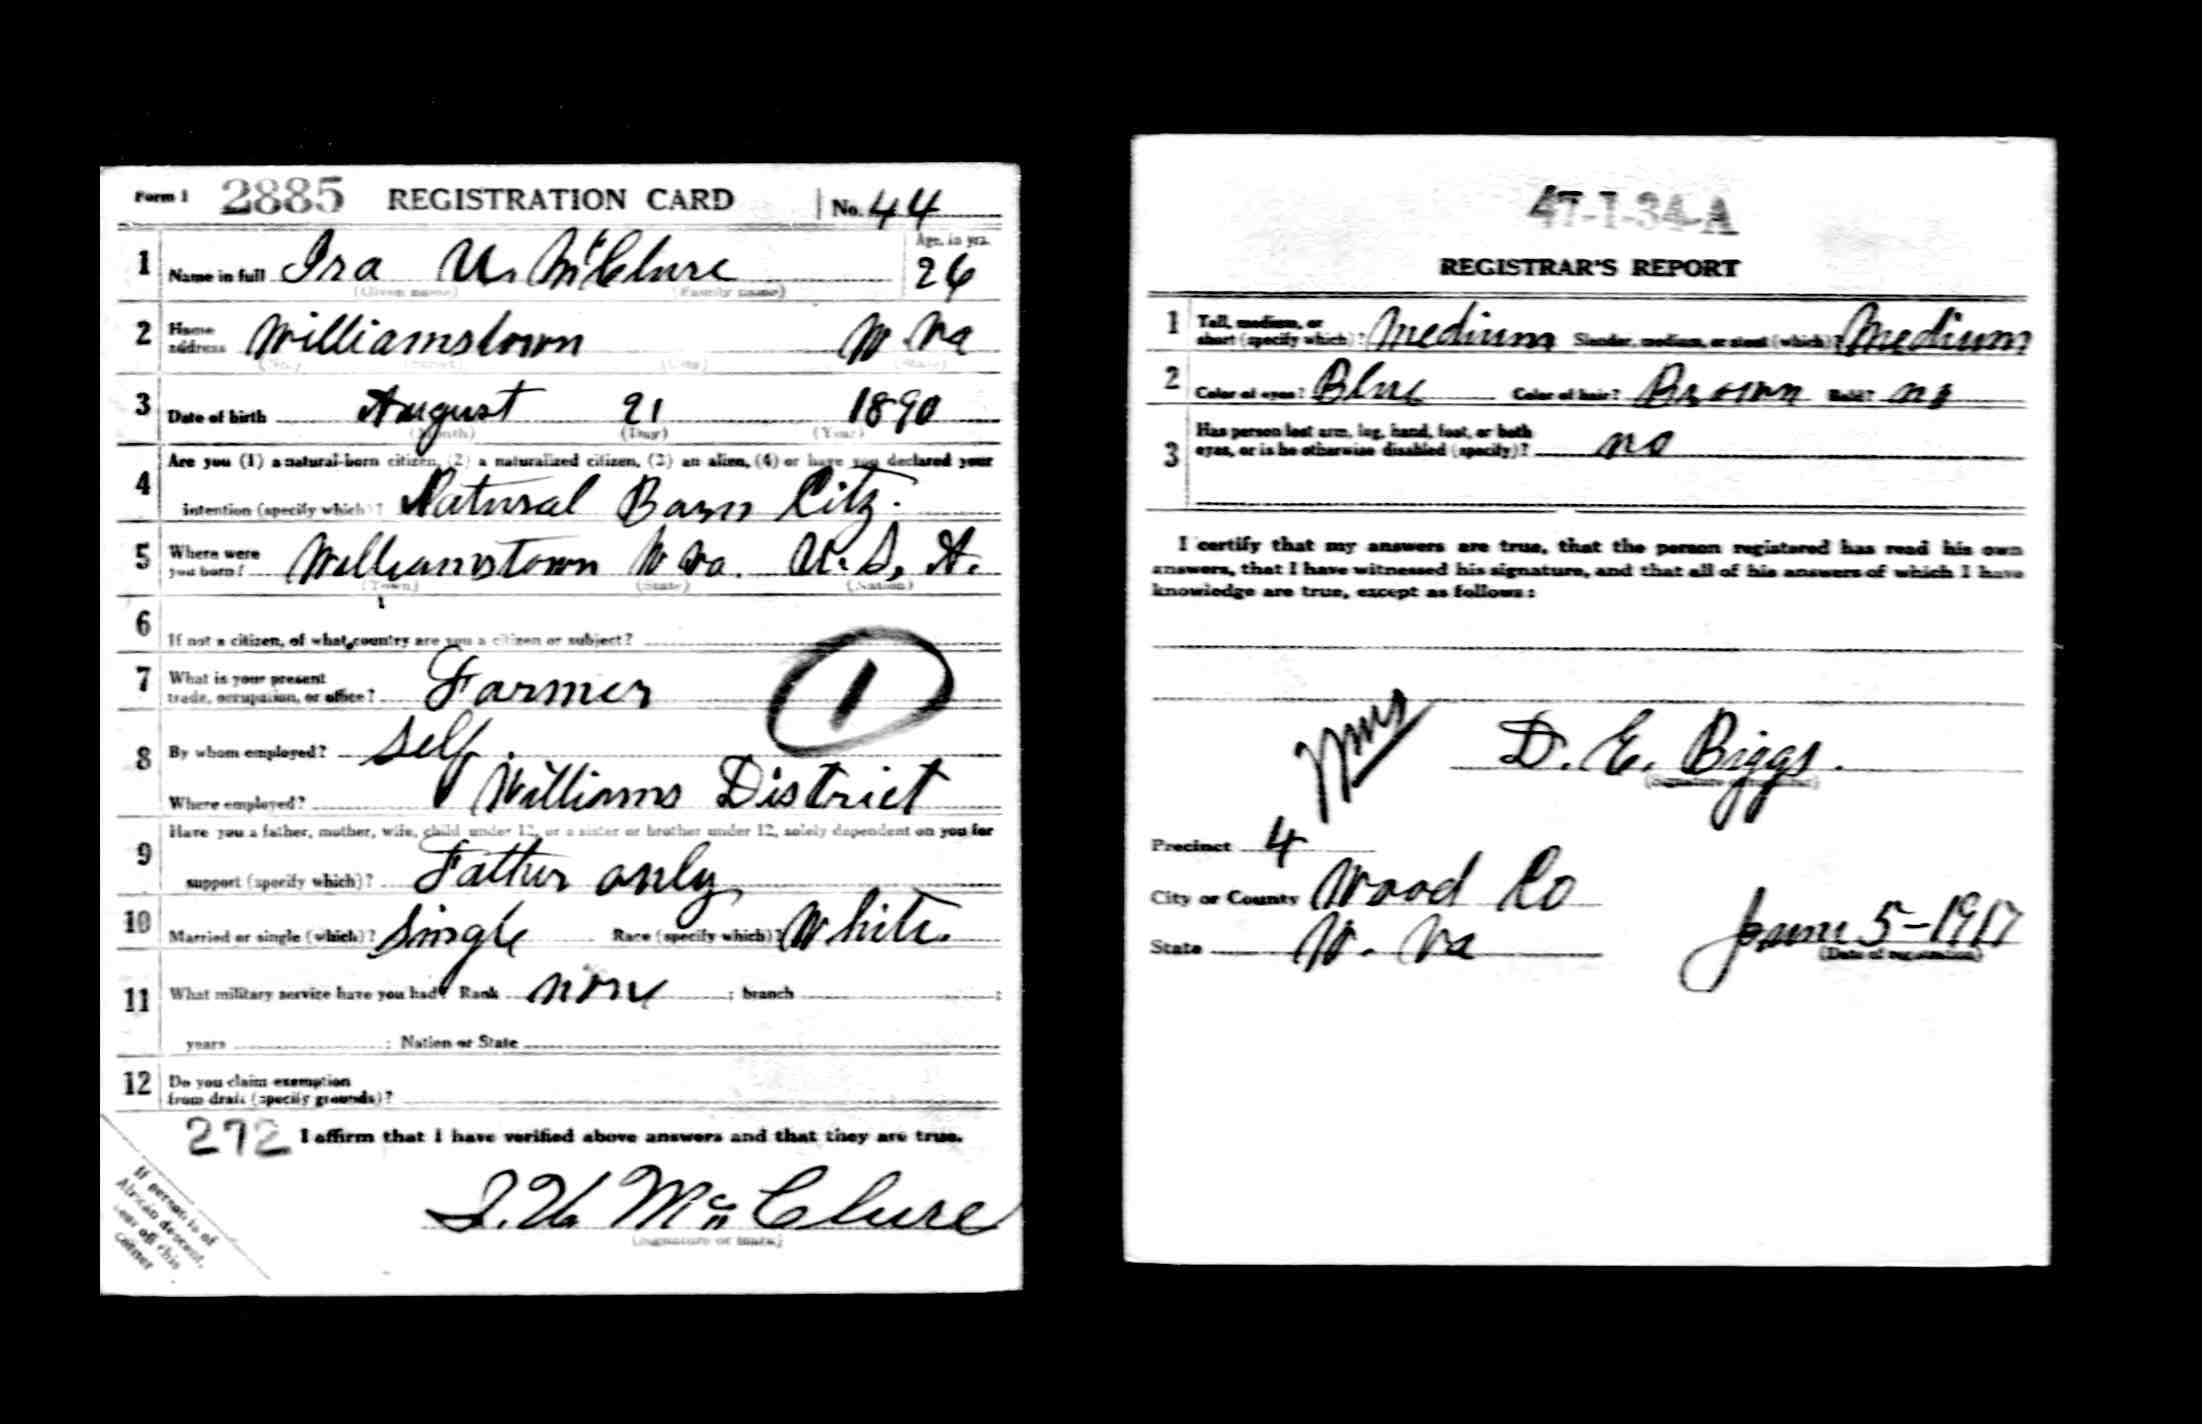 Form 1 2885 REGISTRATION CARD No. 44
1 Name in full Ira U. McClure Age, in yrs. 26
(Given name) (Family name)
2 Home address Williamstown W. Va
(No.) (Street) (City) (State)
3 Date of birth August 21 1890
(Month) (Day) (Year)
4 Are you (1) a natural-born citizen, (2) a naturalized citizen, (3) an alien, (4) or have you declared your
intention (specify which)? Natural Born Citz.
5 Where were you born? Williamstown W Va. U. S. A.
(Town) (State) (Nation)
6 If not a citizen, of what country are you a citizen or subject?
7 What is your present trade, occupation, or office? Farmer 1
8 By whom employed? Self.
Where employed? Williams District
9 Have you a father, mother, wife, child under 12, or a sister or brother under 12, solely dependent on you for
support (specify which)? Father only
10 Married or single (which)? Single Race (specify which)? White.
11 What military service have you had? Rank none ; branch ;
years ; Nation or State
12 Do you claim exemption from draft (specify grounds)?
272 I affirm that I have verified above answers and that they are true.
I. U. McClure
(Signature or mark)
If person is of
African descent,
tear off this
corner
47-1-34-A
REGISTRAR'S REPORT
1 Tall, medium, or short (specify which)? Medium Slender, medium, or stout (which)? Medium
2 Color of eyes? Blue Color of hair? Brown Bald? no
3 Has person lost arm, leg, hand, foot, or both eyes, or is he otherwise disabled (specify)? no
I certify that my answers are true, that the person registered has read his own
answers, that I have witnessed his signature, and that all of his answers of which I have
knowledge are true, except as follows:
D. E. Biggs.
(Signature of registrar)
Precinct 4
City or County Wood Co
State W. Va June 5-1917
(Date of registration)